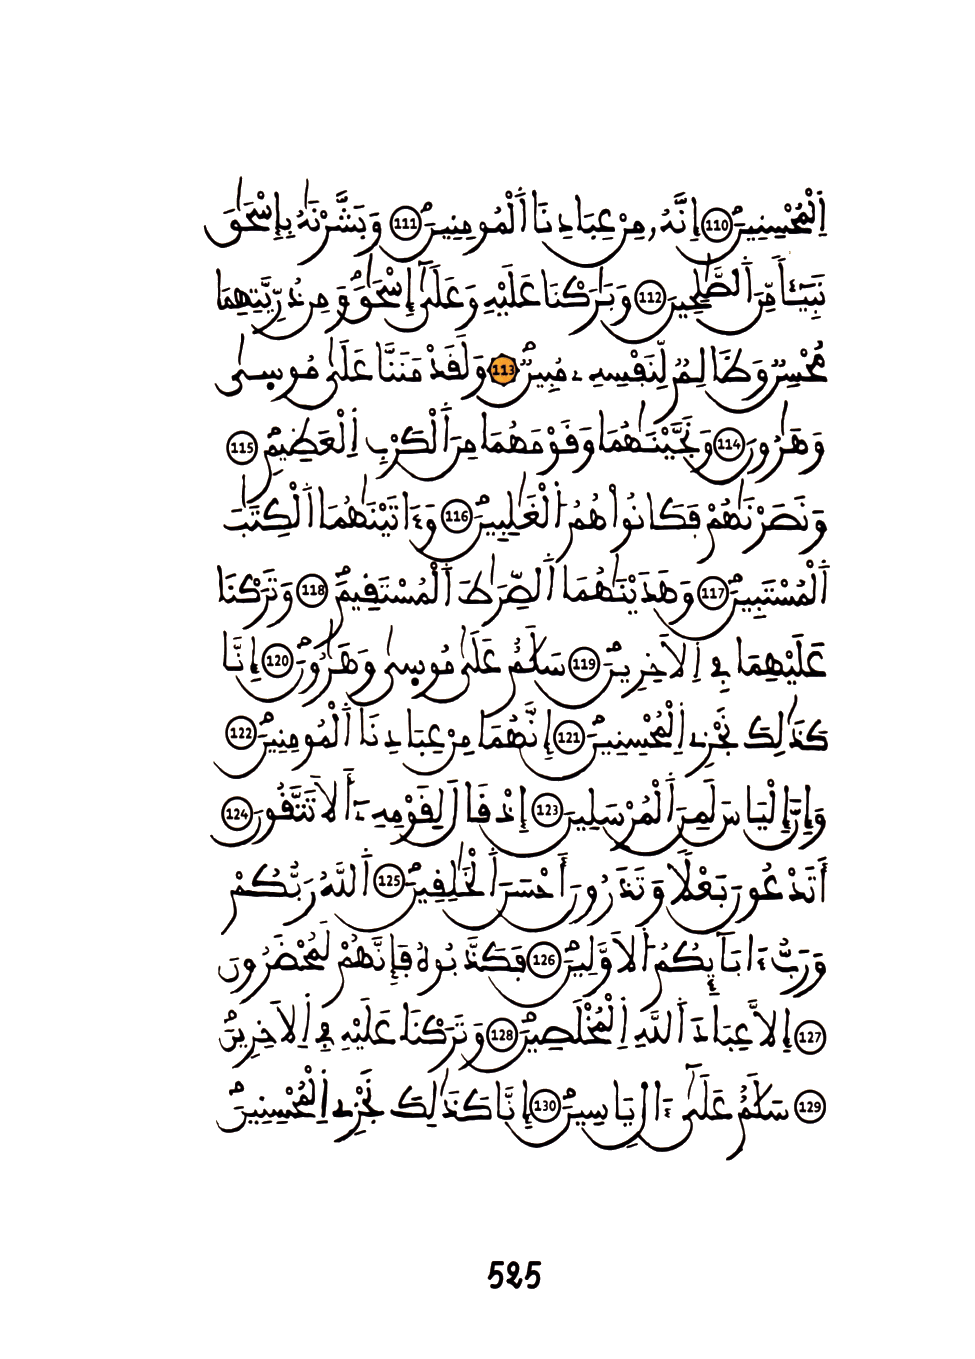 اَ۬لْمُحْسِنِينَۖ 110 إِنَّهُۥ مِنْ عِبَادِنَا اَ۬لْمُومِنِينَۖ 111 وَبَشَّرْنَٰهُ بِإِسْحَٰقَ
نَبِيَـٔاٗ مِّنَ اَ۬لصَّٰلِحِينَ 112 وَبَٰرَكْنَا عَلَيْهِ وَعَلَىٰٓ إِسْحَٰقَۖ وَمِن ذُرِّيَّتِهِمَا
مُحْسِنٞ وَظَالِمٞ لِّنَفْسِهِۦ مُبِينٞۖ 113 وَلَقَدْ مَنَنَّا عَلَىٰ مُوسۭىٰ
وَهَٰرُونَ 114 وَنَجَّيْنَٰهُمَا وَقَوْمَهُمَا مِنَ اَ۬لْكَرْبِ اِ۬لْعَظِيمِۖ 115
وَنَصَرْنَٰهُمْ فَكَانُواْ هُمُ اُ۬لْغَٰلِبِينَۖ 116 وَءَاتَيْنَٰهُمَا اَ۬لْكِتَٰبَ
اَ۬لْمُسْتَبِينَۖ 117 وَهَدَيْنَٰهُمَا اَ۬لصِّرَٰطَ اَ۬لْمُسْتَقِيمَۖ 118 وَتَرَكْنَا
عَلَيْهِمَا فِے اِ۬لَاخِرِينَۖ 119 سَلَٰمٌ عَلَىٰ مُوسۭىٰ وَهَٰرُونَۖ 120 إِنَّا
كَذَٰلِكَ نَجْزِے اِ۬لْمُحْسِنِينَۖ 121 إِنَّهُمَا مِنْ عِبَادِنَا اَ۬لْمُومِنِينَۖ 122
وَإِنَّ إِلْيَاسَ لَمِنَ اَ۬لْمُرْسَلِينَ 123 إِذْ قَالَ لِقَوْمِهِۦٓ أَلَا تَتَّقُونَ 124
أَتَدْعُونَ بَعْلاٗ وَتَذَرُونَ أَحْسَنَ اَ۬لْخَٰلِقِينَۖ 125 اَ۬للَّهُ رَبُّكُمْ
وَرَبُّ ءَابَآئِكُمُ اُ۬لَاوَّلِينَۖ 126 فَكَذَّبُوهُ فَإِنَّهُمْ لَمُحْضَرُونَ
127 إِلَّا عِبَادَ اَ۬للَّهِ اِ۬لْمُخْلَصِينَۖ 128 وَتَرَكْنَا عَلَيْهِ فِے اِ۬لَاخِرِينَۖ
129 سَلَٰمٌ عَلَىٰٓ ءَالِ يَاسِينَۖ 130 إِنَّا كَذَٰلِكَ نَجْزِے اِ۬لْمُحْسِنِينَۖ
525